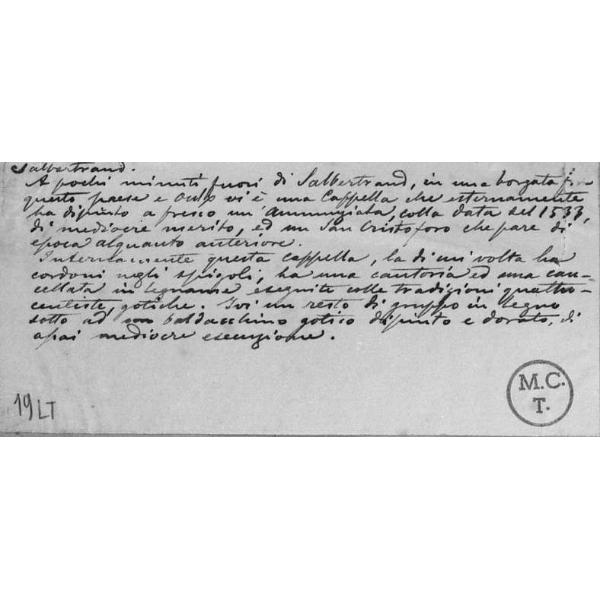 Salbertrand.
A pochi minuti fuori di Salbertrand, in una borgata fra
questo paese e Oulx vi è una Cappella che esternamente
ha dipinto a fresco un' Annunziata, colla data del 1533,
di mediocre merito, ed un San Cristoforo che pare di
epoca alquanto anteriore.
Internamente questa cappella, la di cui volta ha
cordoni negli spigoli, ha una cantoria ed una can-
cellata in legname eseguite colle tradizioni quattro-
centiste gotiche. Ivi un resto di gruppo in legno
sotto ad un baldacchino gotico dipinto e dorato, di
assai mediocre esecuzione.
19 LT
M.C.
T.